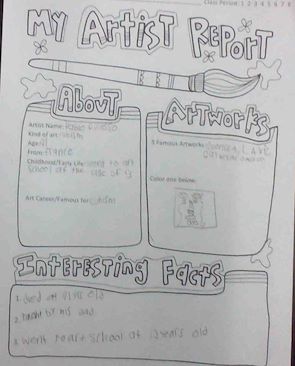 Class Period 1 2 3 4 5 6 7 8
My Artist Report
About
Artist Name: Pablo Picasso
Kind of art:
Age: 91
From: France
Childhood/Early Life: went to art
school at the age of 13
Art Career/Famous for:
Artworks
3 Famous Artworks
Color one below:
Interesting Facts
1. died at 91 yrs old
2. taught by his dad
3. went to art school at 13 years old